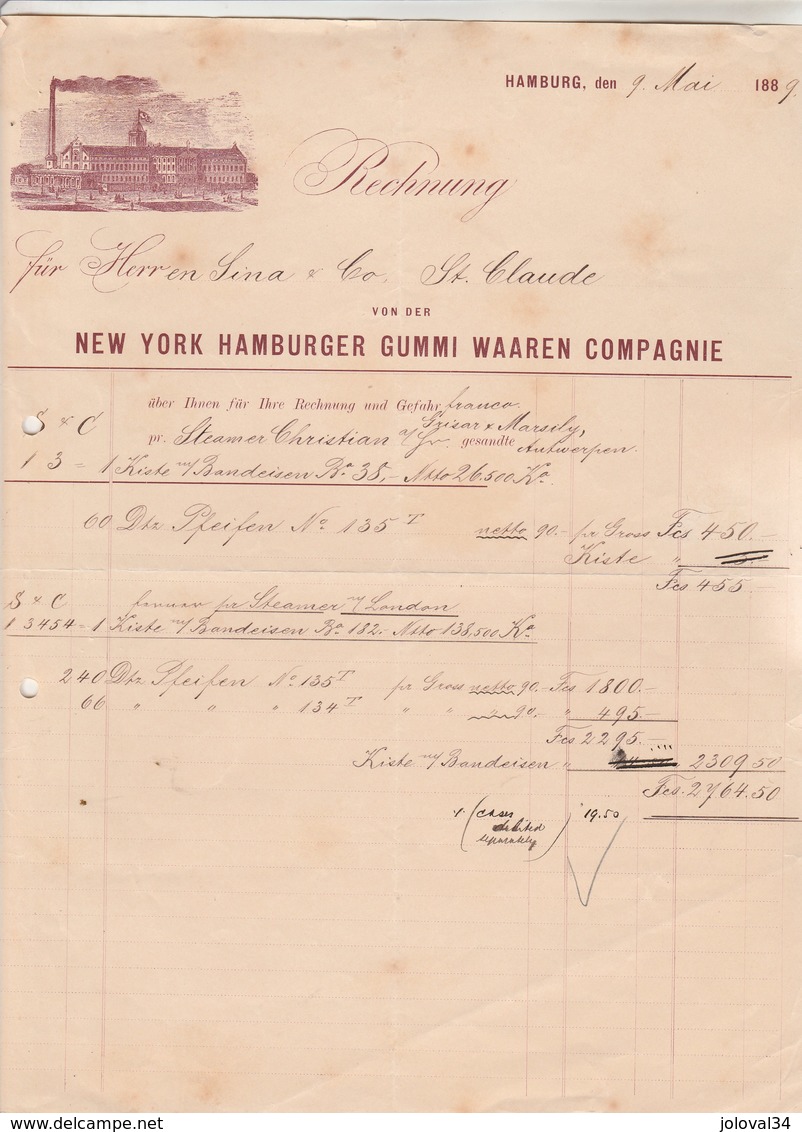 HAMBURG, den 9. Mai 1889.
Rechnung
für Herren Sina & Co, St. Claude
VON DER
NEW YORK HAMBURGER GUMMI WAAREN COMPAGNIE
über Ihnen für Ihre Rechnung und Gefahr franco
S & C pr. Steamer Christian a/ Grisar & Marsily, gesandte Antwerpen.
13 = 1 Kiste m/ Bandeisen Bo 38,- Ntto 26.500 Ko.
60 Dtz Pfeifen No 135 T netto 90.- pr Gross Fcs 450.-
Kiste "
Fcs 455
S & C pr Steamer n/ London
13454 = 1 Kiste m/ Bandeisen Bo 182.- Ntto 138,500 Ko
240 Dtz Pfeifen No 135 T pr Gross netto 90.- Fcs 1800.-
66 " " " 134 T " " " 90. " 495.-
Fcs 2295.-
Kiste m/ Bandeisen " 2309 50
Fcs. 2764.50
(cases debited separately) 19.50
joloval34